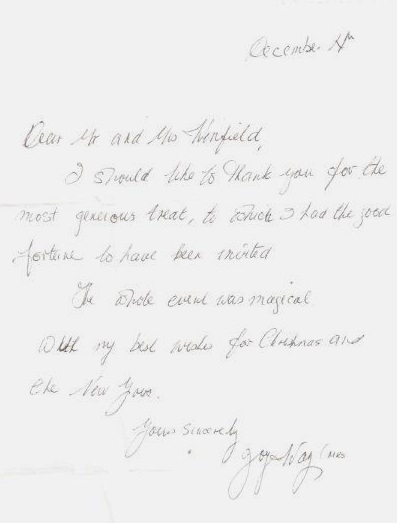 December 4th
Dear Mr and Mrs Winfield,
I should like to thank you for the
most generous treat, to which I had the good
fortune to have been invited
The whole event was magical
With my best wishes for Christmas and
the New Year.
Yours Sincerely
(MRS